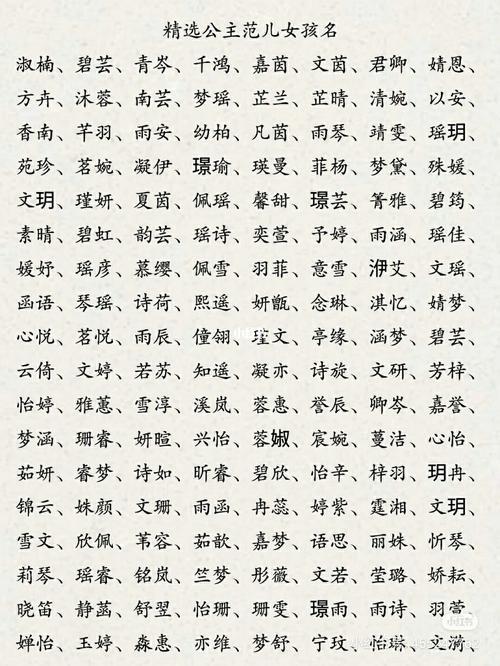 精选公主范儿女孩名
淑楠、碧芸、青岑、千鸿、嘉茵、文茵、君卿、婧恩、
方卉、沐蓉、南芸、梦瑶、芷兰、芷晴、清婉、以安、
香南、芊羽、雨安、幼柏、凡茵、雨琴、靖雯、瑶玥、
苑珍、茗婉、凝伊、璟瑜、瑛曼、菲杨、梦黛、殊媛、
文玥、瑾妍、夏茵、佩瑶、馨甜、璟芸、箐雅、碧筠、
素晴、碧虹、韵芸、瑶诗、奕萱、予婷、雨涵、瑶佳、
媛妤、瑶彦、慕缨、佩雪、羽菲、意雪、洢艾、文瑶、
函语、琴瑶、诗荷、熙遥、妍甑、念琳、淇忆、婧梦、
心悦、茗悦、雨辰、僮翎、瑾文、亭缘、涵梦、碧芸、
云倚、文婷、若苏、知遥、凝亦、诗旋、文研、芳梓、
怡婷、雅蕙、雪淳、溪岚、蓉惠、誉辰、卿岑、嘉誉、
梦涵、珊睿、妍暄、兴怡、蓉婌、宸婉、蔓洁、心怡、
茹妍、睿梦、诗如、昕睿、碧欣、怡辛、梓羽、玥冉、
锦云、姝颜、文珊、雨函、冉蕊、婷紫、霆湘、文玥、
雪文、欣佩、苇容、茹歆、嘉梦、语思、丽姝、忻琴、
莉琴、瑶睿、铭岚、竺梦、彤薇、文若、莹璐、娇耘、
晓笛、静菡、舒翌、怡珊、珊雯、璟雨、雨诗、羽
婵怡、玉婷、淼惠、亦维、梦舒、宁玟、怡琳、文漪
小红书